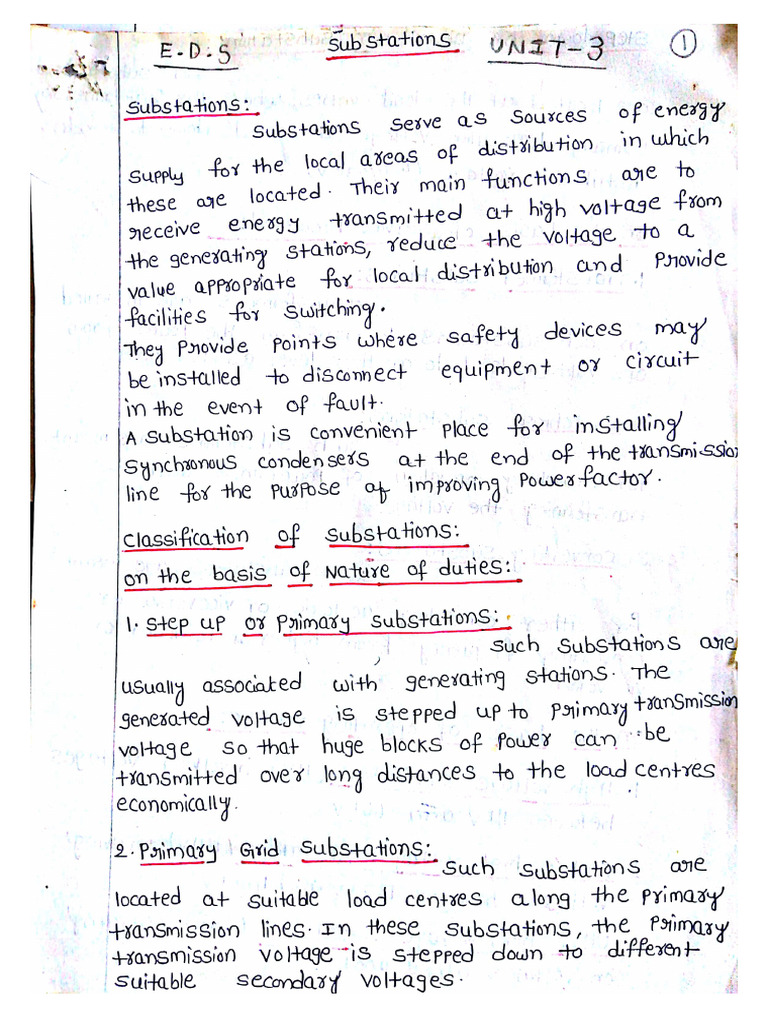 E.D.S Substations UNIT-3 1
Substations:
Substations serve as sources of energy
supply for the local areas of distribution in which
these are located. Their main functions are to
receive energy transmitted at high voltage from
the generating stations, reduce the voltage to a
value appropriate for local distribution and provide
facilities for switching.
They provide points where safety devices may
be installed to disconnect equipment or circuit
in the event of fault.
A substation is convenient place for installing
synchronous condensers at the end of the transmission
line for the purpose of improving power factor.
Classification of substations:
on the basis of Nature of duties:
1. Step up or primary substations:
such substations are
usually associated with generating stations. The
generated voltage is stepped up to primary transmission
voltage so that huge blocks of power can be
transmitted over long distances to the load centres
economically.
2. Primary Grid Substations:
Such substations are
located at suitable load centres along the primary
transmission lines. In these substations, the primary
transmission voltage is stepped down to different
suitable secondary voltages.